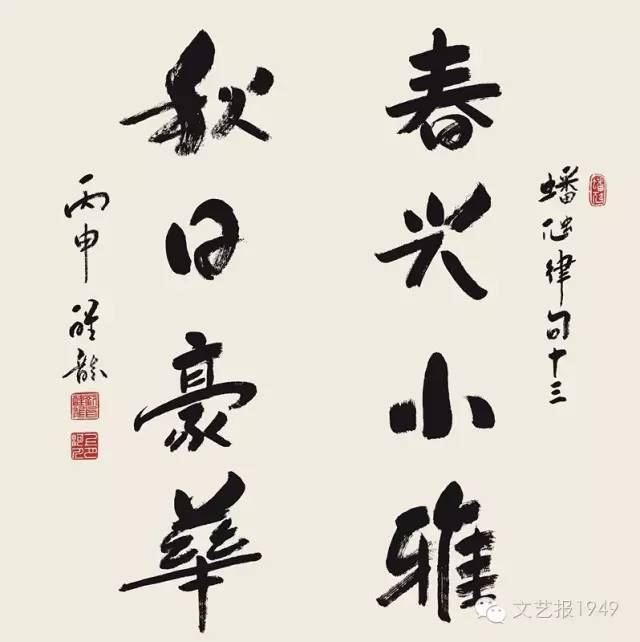 春兴小雅
蟠仙律句十三
秋日豪華
丙申
文艺报1949